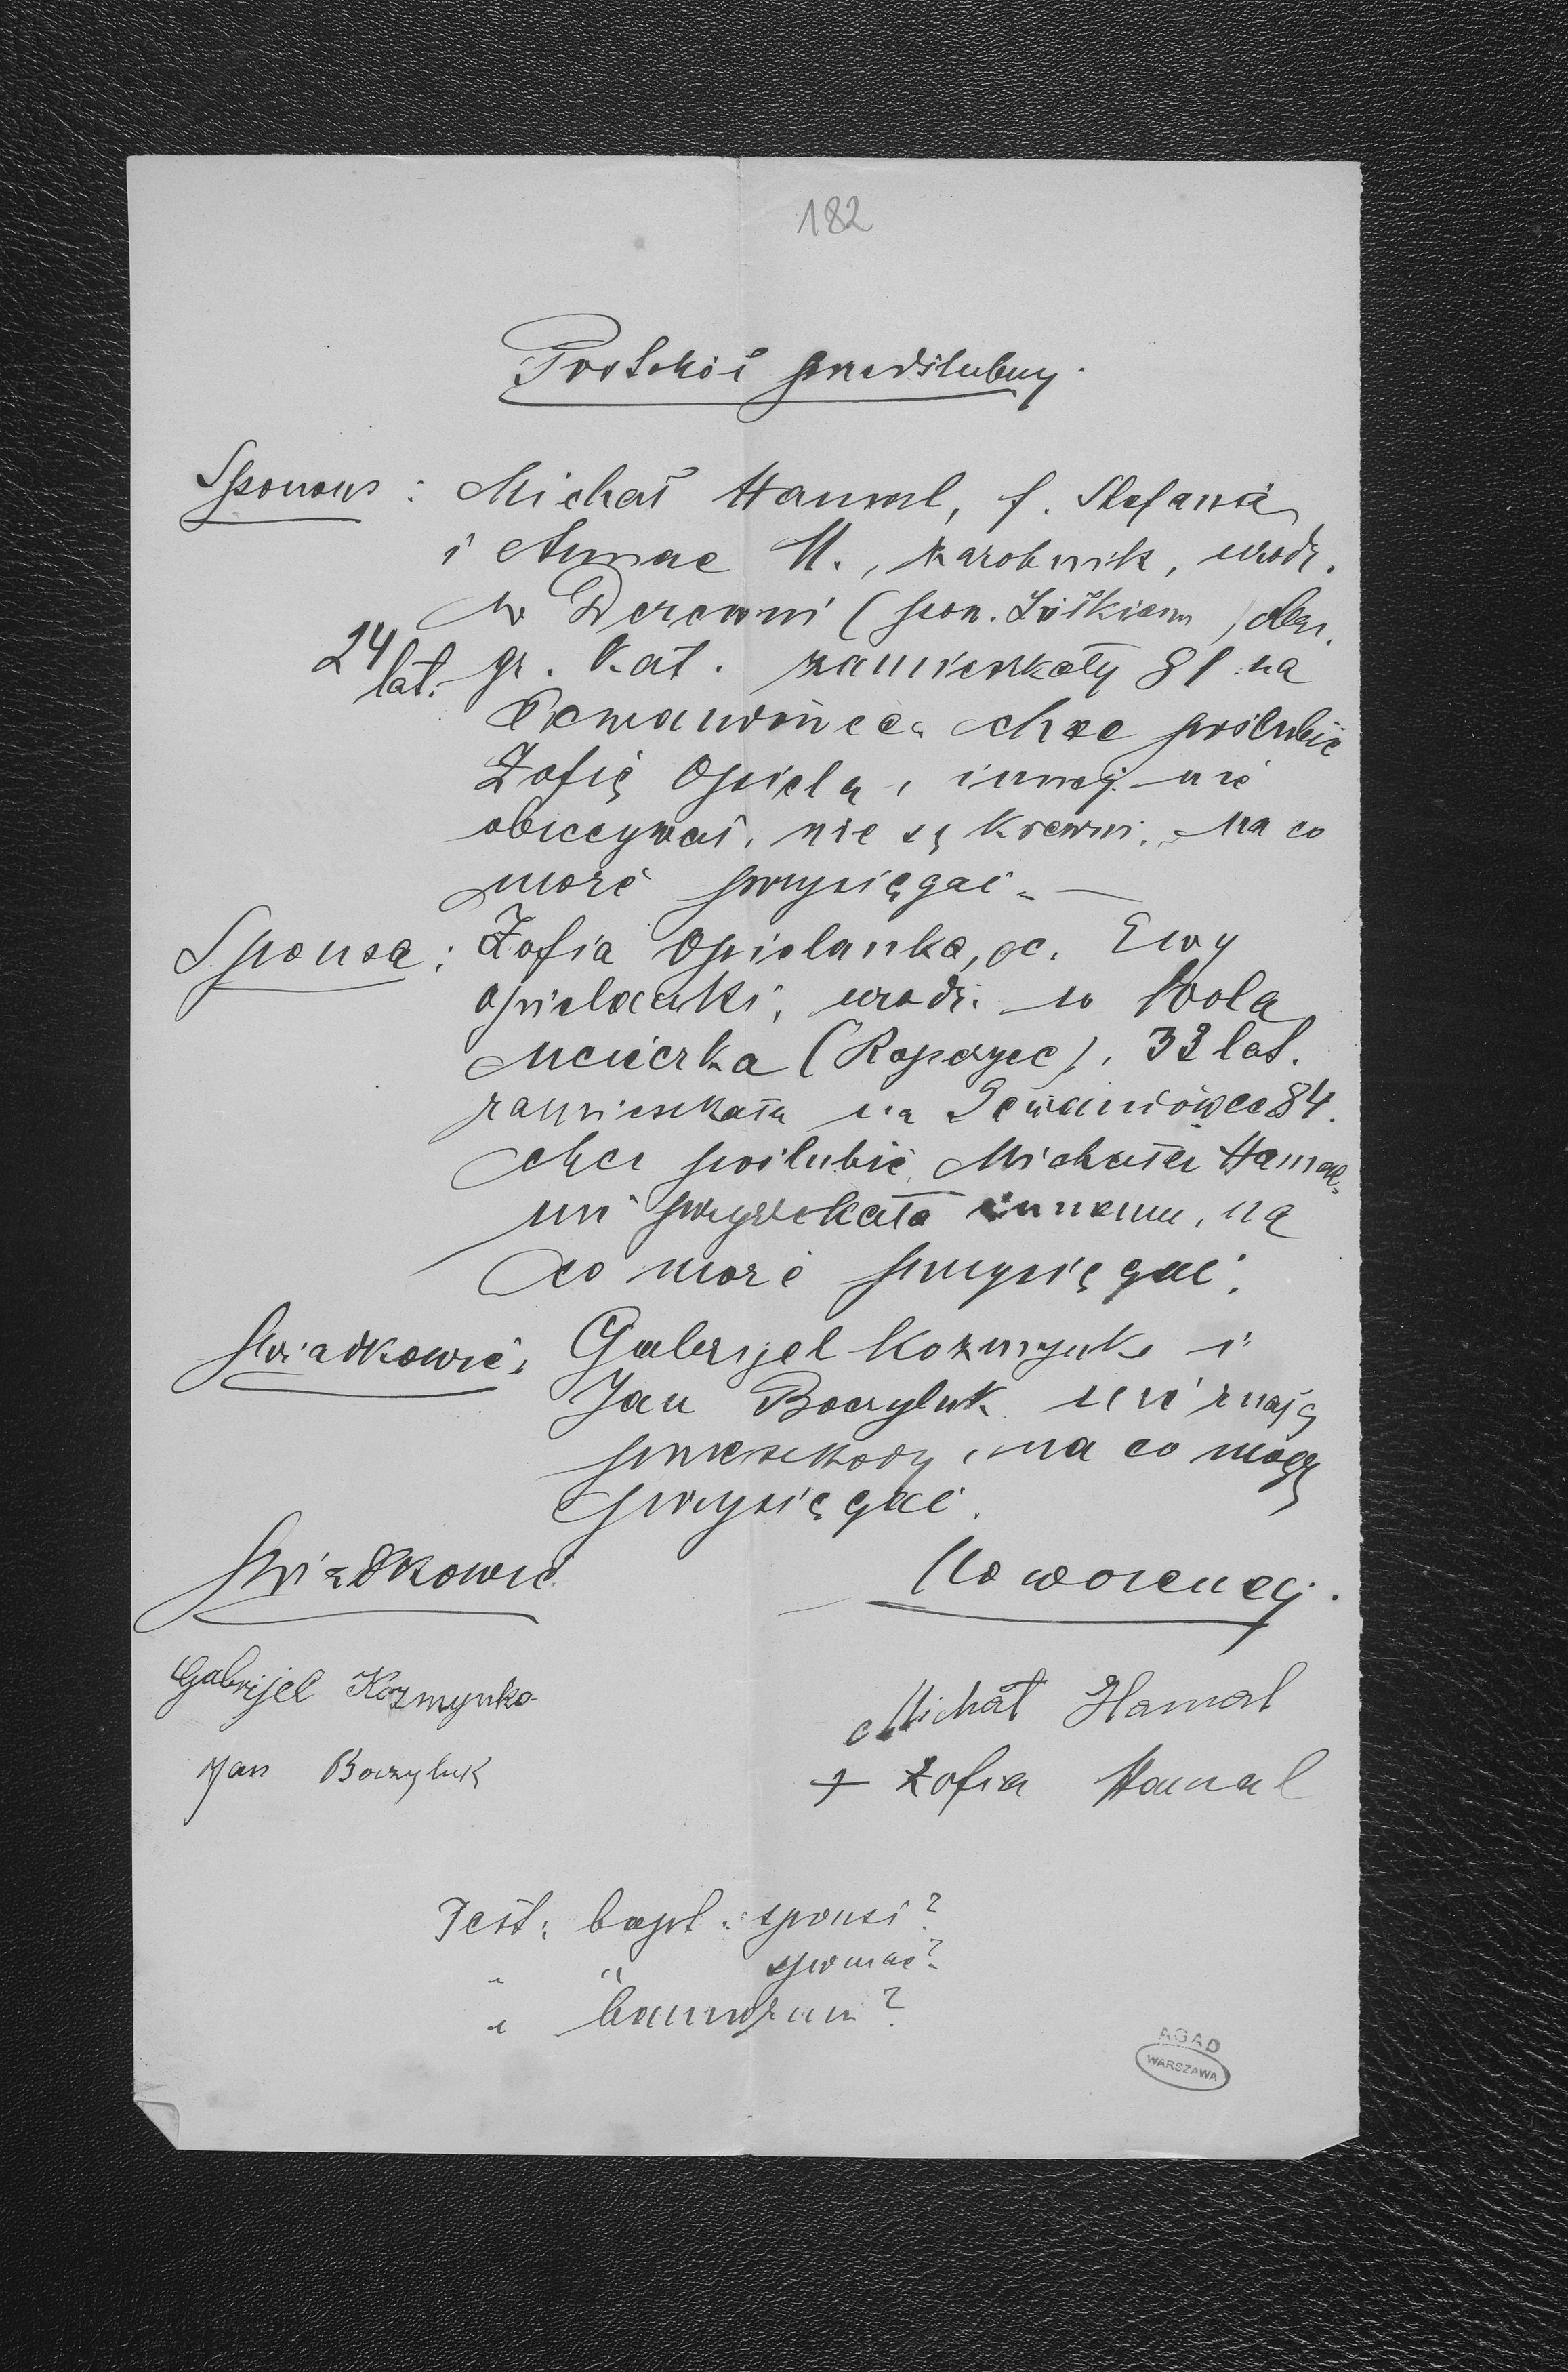 182
Protokół przedślubny.
Sponsus: Michał Hamal, f. Stefana
i Annae H., zarobnik, urodz.
w Derewni (pow. Żółkiew), obrz.
24 lat. gr. kat. zamieszkały 81 na
chce poślubić
Zofię Opiela, innej nie
obiecywał, nie są krewni, na co
może przysięgać. —
Sponsa: Zofia Opielanka, c. Ewy
Opielanki, urodz. w Wola
(Ropczyce), 33 lat.
zamieszkała na Lewandówce 84.
chce poślubić Michała Hamal,
nie przyrzekała innemu, na
co może przysięgać.
Świadkowie: Gabrijel Kozmynko i
Jan Baczyluk nie znają
przeszkody, na co mogą
przysięgać.
Świadkowie Nowożeńcy.
Gabrijel Kozmynko Michał Hamal
Jan Baczyluk + Zofia Hamal
Test: bapt. sponsi?
" " sponsae?
" bannorum?
AGAD
WARSZAWA